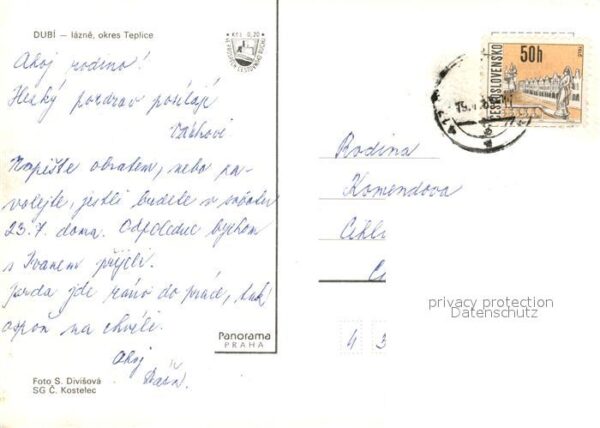 DUBÍ — lázně, okres Teplice
Kčs 0,20
Ahoj rodino!
Hezký pozdrav posílají
Napište obratem, nebo za-
volejte, jestli budete v sobotu
23.7. doma. Odpoledne bychom
s Ivanem přijeli.
Jarda jde ráno do práce, tak
aspoň na chvíli.
Ahoj
Panorama
PRAHA
Foto S. Divišová
SG Č. Kostelec
50h
ČESKOSLOVENSKO
TELČ
Rodina
Komendova
privacy protection
Datenschutz
4 3